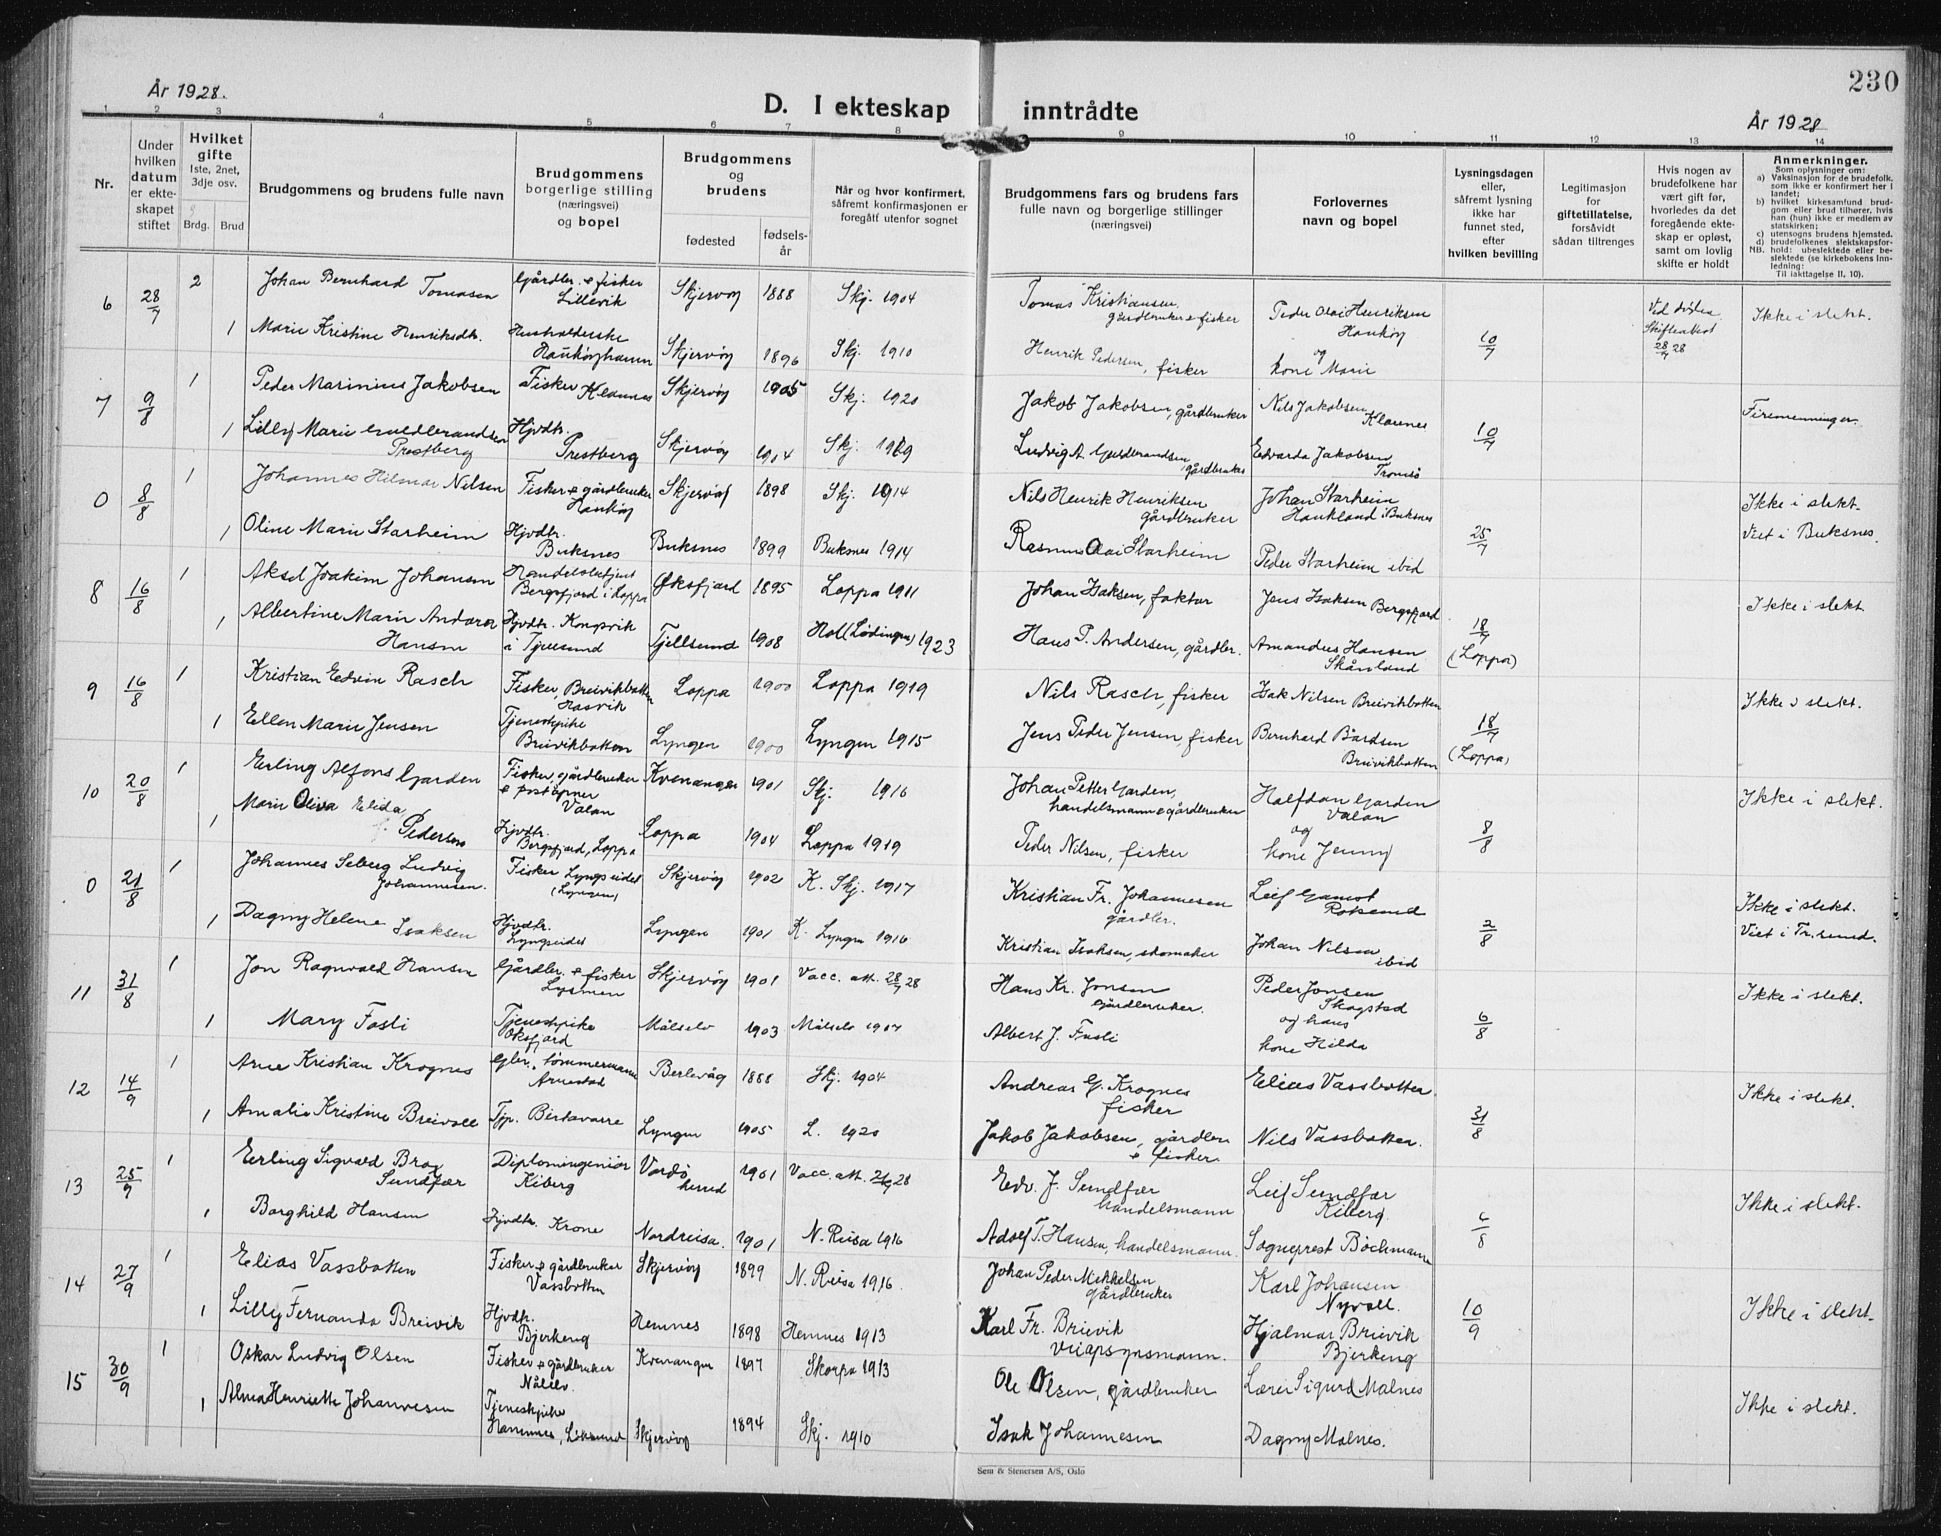 230
År 1928.
D. I ekteskap inntrådte
År 1928
1 2 3 4 5 6 7 8 9 10 11 12 13 14
Nr.
Under hvilken datum er ekteskapet stiftet
Hvilket gifte
1ste, 2net, 3dje osv.
Brdg. Brud
Brudgommens og brudens fulle navn
Brudgommens borgerlige stilling (næringsvei) og bopel
Brudgommens og brudens
fødested
fødselsår
Når og hvor konfirmert, såfremt konfirmasjonen er foregått utenfor sognet
Brudgommens fars og brudens fars fulle navn og borgerlige stillinger (næringsvei)
Forlovernes navn og bopel
Lysningsdagen eller, såfremt lysning ikke har funnet sted, efter hvilken bevilling
Legitimasjon for giftetillatelse, forsåvidt sådan tiltrenges
Hvis nogen av brudefolkene har vært gift før, hvorledes da det foregående ekteskap er opløst, samt om lovlig skifte er holdt
Anmerkninger.
Som oplysninger om:
a) Vaksinasjon for de brudefolk, som ikke er konfirmert her i landet;
b) hvilket kirkesamfund brudgom eller brud tilhører, hvis han (hun) ikke er medlem av statskirken;
c) utensogns brudens hjemsted.
d) brudefolkenes slektskapsforhold: ubeslektede eller beslektede (se kirkebokens Innledning:
NB. Til iakttagelse II, 10).
6 28/7 2 Johan Bernhard Tomasen Gårdbr. & fisker Lillevik Skjervøy 1888 Skj. 1904 Tomas Kristiansen, gårdbruker & fisker Peder Olai Henriksen Haukøy Ved døden Skifteattest 28/7 28 Ikke i slekt.
1 Marie Kristine Henriksdtr. Husholderske Haukøyhamn Skjervøy 1896 Skj. 1910 Henrik Pedersen, fisker og kone Marie 10/7
7 9/8 1 Peder Marinius Jakobsen Fisker Klauvnes Skjervøy 1905 Skj. 1920 Jakob Jakobsen, gårdbruker Nils Jakobsen Klauvnes Firemenninger.
1 Lilly Marie Guldbrandsen Prestberg Hjvdtr. Prestberg Skjervøy 1904 Skj. 1919 Ludvig A. Guldbrandsen, gårdbruker Edvarda Jakobsen Tromsø 10/7
0 8/8 1 Johannes Hilmar Nilsen Fisker & gårdbruker Haukøy Skjervøy 1898 Skj. 1914 Nils Henrik Henriksen gårdbruker Johan Starheim Haukland i Buksnes Ikke i slekt.
1 Oline Marie Starheim Hjvdtr. Buksnes Buksnes 1899 Buksnes 1914 Rasmus Olai Starheim Peder Starheim ibid 25/7 Viet i Buksnes.
8 16/8 1 Aksel Joakim Johansen Handelsbetjent Bergsfjord i Loppa Øksfjord 1895 Loppa 1911 Johan Isaksen, faktor Jens Isaksen Bergsfjord Ikke i slekt
1 Albertine Marie Andora Hansen Hjvdtr. Kongsvik i Tjeldsund Tjellsund 1908 Hol (Lødingen) 1923 Hans P. Andersen, gårdbr. Amandus Hansen Skånland 18/7 (Loppa)
9 16/8 1 Kristian Edvin Rasch Fisker, Breivikbotten Hasvik Loppa 1900 Loppa 1919 Nils Rasch, fisker Isak Nilsen Breivikbotten Ikke i slekt.
1 Ellen Marie Jensen Tjenestpike Breivikbotten Lyngen 1900 Lyngen 1915 Jens Peder Jensen, fisker Bernhard Bårdsen Breivikbotten 18/7 (Loppa)
10 20/8 1 Erling Alfons Garden Fisker, gårdbruker & poståpner Valan Kvenangen 1901 Skj. 1916 Johan Petter Garden, handelsmann & gårdbruker Halfdan Garden Valan Ikke i slekt.
1 Marie Oliva Elida Pedersen Hjvdtr. Bergsfjord, Loppa Loppa 1904 Loppa 1919 Peder Nilsen, fisker og kone Jenny 8/8
0 21/8 1 Johannes Seberg Ludvig Johannesen. Fisker Lyngseidet (Lyngen) Skjervøy 1902 K. Skj. 1917 Kristian Fr. Johannesen gårdbr. Leif Gamst Rotsund Ikke i slekt.
1 Dagny Helene Isaksen Hjvdtr. Lyngseidet Lyngen 1901 K. Lyngen 1916 Kristian Isaksen, skomaker Johan Nilsen ibid 2/8 Viet i Tr.sund.
11 31/8 1 Jon Ragnvald Hansen Gårdbr. & fisker Skjervøy 1901 Vacc. att. 28/7 28 Hans Kr. Jonsen gårdbruker. Peder Jonsen Skogstad Ikke i slekt.
1 Mary Fosli Tjenestpike Oksfjord Målselv 1903 Målselv 1917 Albert J. Fosli og hans kone Hilda 6/8
12 14/9 1 Arne Kristian Krognes Gbr., tømmermann Arnestad Berlevåg 1888 Skj. 1904 Andreas G. Krognes fisker Elias Vassbotten. Ikke i slekt.
1 Amalie Kristine Breivoll Tjp. Birtavarre Lyngen 1905 L. 1920 Jakob Jakobsen, gårdbr. & fisker Nils Vassbotten. 31/8
13 25/9 1 Erling Sigvald Brox Sundfær Diplomingeniør Kiberg Vardø herred 1901 Vacc. att. 28 Edv. J. Sundfær handelsmann Leif Sundfær Kiberg Ikke i slekt.
1 Borghild Hansen Hjvdtr. Krone Nordreisa. 1901 N. Reisa 1916 Adolf T. Hansen, handelsmann. Sogneprest Bochmann 6/8
14 27/9 1 Elias Vassbotten Fisker & gårdbruker Vassbotten Skjervøy 1899 N. Reisa 1916. Johan Peder Mikkelsen gårdbruker Karl Johansen Nyvoll.
1 Lilly Fernanda Breivik Hjvdtr. Bjerkeng Hemnes 1898 Hemnes 1913 Karl Fr. Breivik veiopsynsmann. Hjalmar Breivik Bjerkeng 10/9 Ikke i slekt.
15 30/9 1 Oskar Ludvig Olsen Fisker & gårdbruker Kvenangen 1897 Skorpa 1913 Ole Olsen, gårdbruker Lærer Sigurd Malnes
1 Alma Henriette Johannesen Tjenestpike Hamnnes, Skjervøy 1894 Skj. 1910 Isak Johannesen Dagny Malnes. Ikke i slekt.
Sem & Stenersen A/S, Oslo